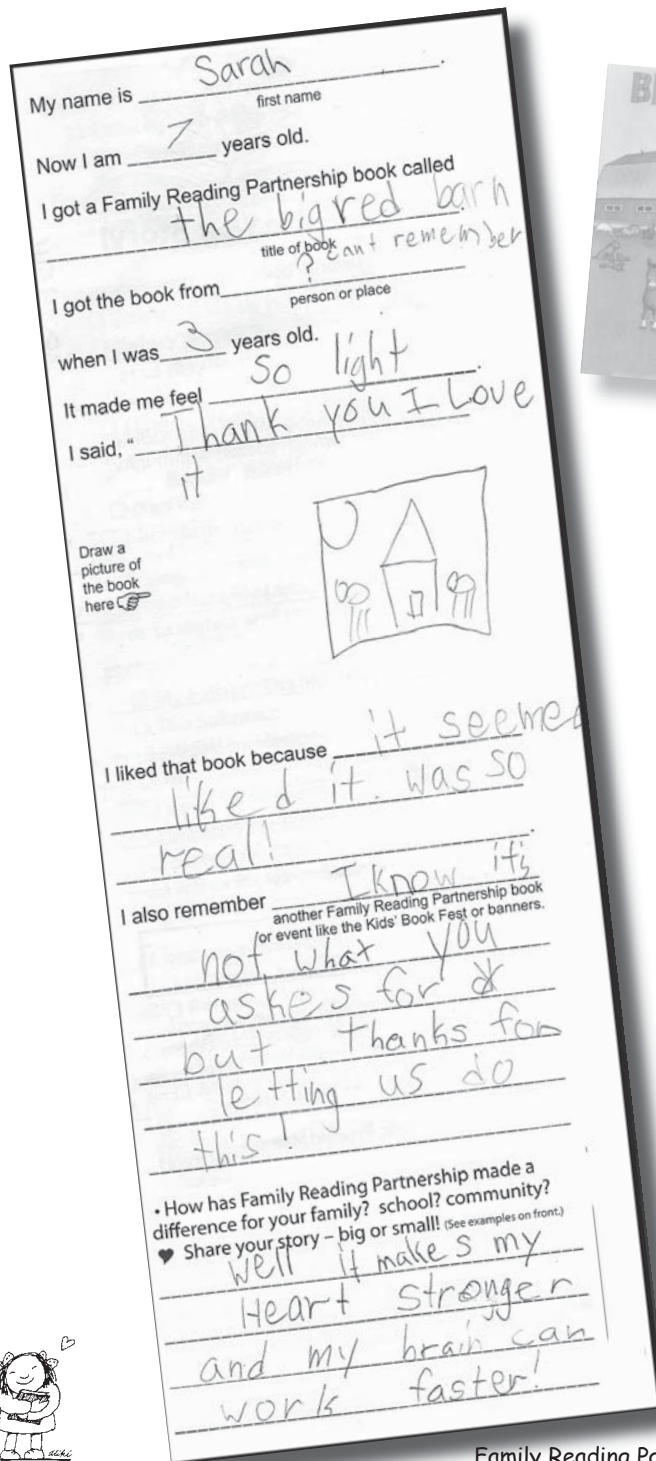 My name is Sarah.
first name
Now I am 7 years old.
I got a Family Reading Partnership book called
the big red barn
title of book
? cant remember
I got the book from
person or place
when I was 3 years old.
It made me feel so light.
I said, “Thank you I Love
it
Draw a
picture of
the book
here
I liked that book because it seemed
liked it. was so
real!
I also remember I know it's
another Family Reading Partnership book
or event like the Kids' Book Fest or banners.
not what you
askes for
but thanks for
letting us do
this!
• How has Family Reading Partnership made a
difference for your family? school? community?
♥ Share your story – big or small! (See examples on front.)
well it makes my
Heart stronger
and my brain can
work faster!
aliki
Family Reading